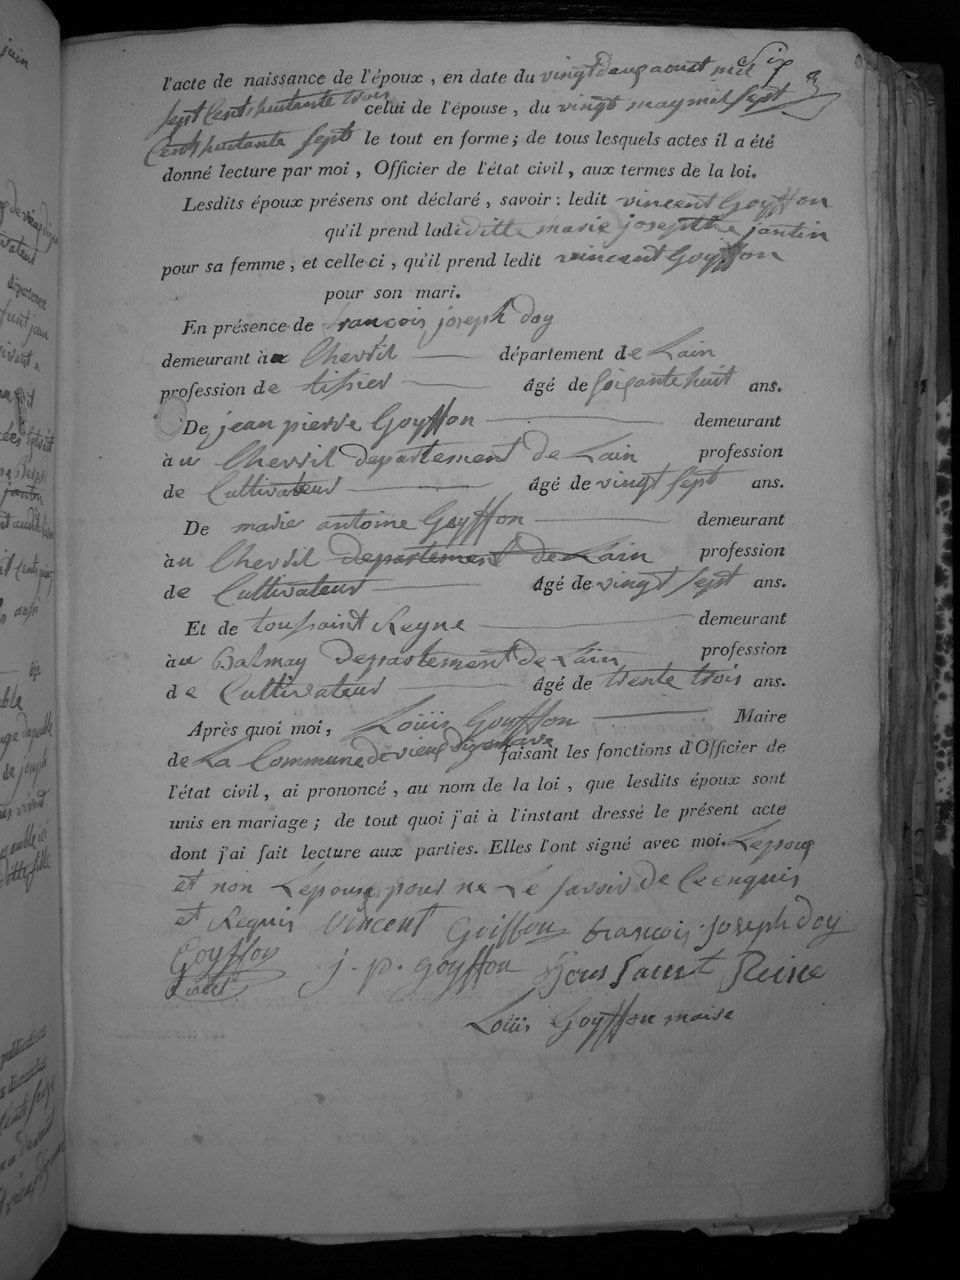 Six
l'acte de naissance de l'époux, en date du vingt deux aoust mil
sept Cent huitante trois celui de l'épouse, du vingt may mil sept
Cent huitante sept le tout en forme; de tous lesquels actes il a été
donné lecture par moi, Officier de l'état civil, aux termes de la loi.
Lesdits époux présens ont déclaré, savoir: ledit vincent Goyffon
qu'il prend ladeditte marie josephte jantin
pour sa femme, et celle ci, qu'il prend ledit vincent Goyffon
pour son mari.
En présence de francois joseph doy
demeurant à au Chevril département de Lain
profession de tissier âgé de soixante huit ans.
De jean pierre Goyffon demeurant
à au Chevril departement de Lain profession
de Cultivateur âgé de vingt sept ans.
De marie antoine Goyffon demeurant
à au Chevril departement de Lain profession
de Cultivateur âgé de vingt sept ans.
Et de toussaint Reyne demeurant
à au Balmay Departement de Lain profession
de Cultivateur âgé de trente trois ans.
Après quoi moi, Loüis Goyffon Maire
de La Commune de vieux disenave faisant les fonctions d'Officier de
l'état civil, ai prononcé, au nom de la loi, que lesdits époux sont
unis en mariage; de tout quoi j'ai à l'instant dressé le présent acte
dont j'ai fait lecture aux parties. Elles l'ont signé avec moi. Lepoux
et non Lepouse pour ne Le savoir de Ce enquis
et Requis vincent Goiffon francois joseph Doy
Goyffon j. p. goyffon Toussaint Reine
Loüis Goyffon maire